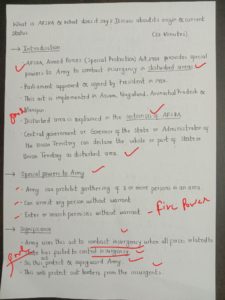 What is AFSPA & What does it say? Discuss about its origin & current
status. (10 Minutes)
→ Introduction
AFSPA, Armed Forces (Special Protection) Act 1958 provides special
powers to Army to contact insurgency in disturbed areas
- Parliament approved & signed by President in 1958
- This act is implemented in Assam, Nagaland, Arunachal Pradesh &
Manipur
- Disturbed area is explained in the section of AFSPA
- Central government or Governor of the State or Administrator of
the Union Territory can declare the whole or part of State or
Union Territory as disturbed area.
→ Special powers to Army
- Army can prohibit gathering of 5 or more persons in an area
- Can arrest any person without warrant
- Enter or search premises without warrant
- Fire Power
→ Significance
- Army uses this act to contact insurgency when all forces related to
State has failed to control insurgency
- So this protect & safeguard Army
- This will protect our borders from the insurgents.